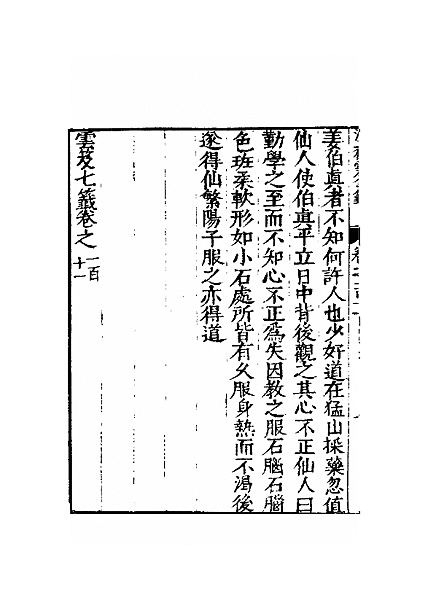 姜伯真者不知何許人也少好道在猛山採藥忽值
仙人使伯真平立日中背後觀之其心不正仙人曰
勤學之至而不知心不正為失因教之服石腦石腦
色斑柔軟形如小石處所皆有久服身熱而不渴後
遂得仙繁陽子服之亦得道
雲笈七籤卷之一百十一